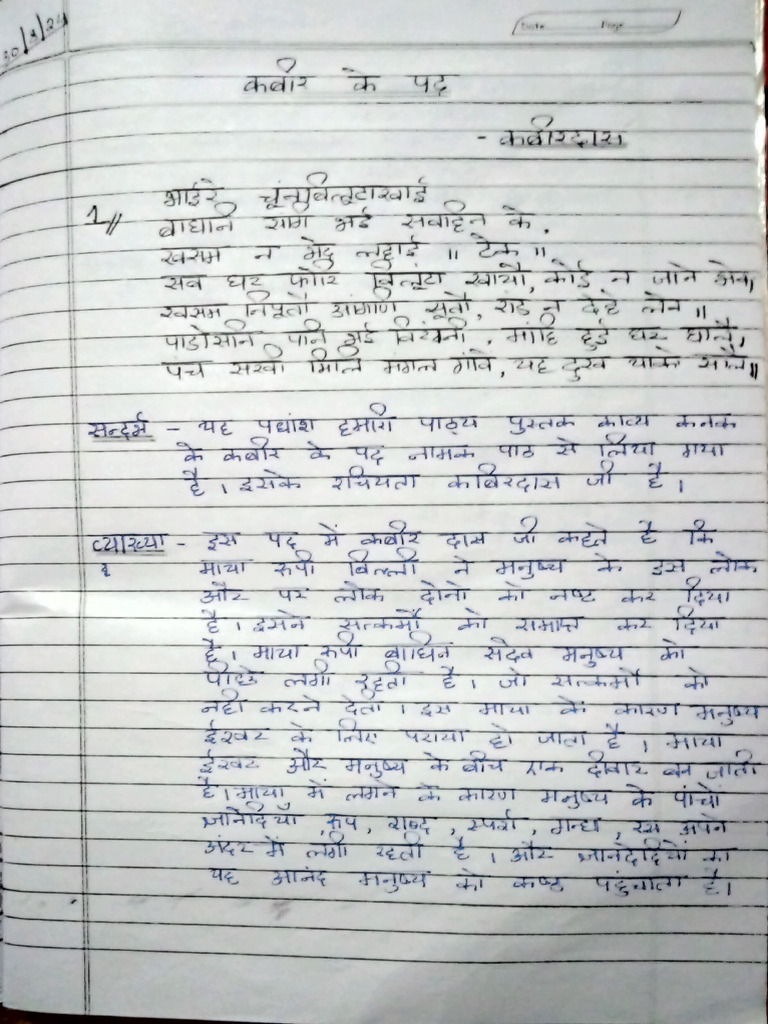 30/4/24
Date Page
कबीर के पद
- कबीरदास
1// भाईरे चूंनबिलूंटाखाई
बाघनि संगि भई सबहिन के .
खसम न भेद लहाई ॥ टेक ॥
सब घर फोरि बिलूंटा खायौ, कोई न जाने भेव,
खसम निपूतौ आंगणि सूतौ, रांड न देई लेव ॥
पाडोसनि पनि भई बिरांनी . मांहि हुई घर घालै,
पंच सखी मिलि मंगल गांवे, यह दुख याकौ सालै ॥
सन्दर्भ - यह पद्यांश हमारी पाठ्य पुस्तक काव्य कनक
के कबीर के पद नामक पाठ से लिया गया
है । इसके रचियता कबिरदास जी है ।
व्याख्या - इस पद में कबीर दास जी कहते है कि
माया रुपी बिल्ली ने मनुष्य के इस लोक
और पर लोक दोनो को नष्ट कर दिया
है । इसने सत्कर्मो को समाप्त कर दिया
है । माया रुपी बाघिन सदैव मनुष्य को
पीछे लगी रहती है । जो सत्कर्मो को
नही करने देती । इस माया के कारण मनुष्य
ईश्वर के लिए पराया हो जाता है । माया
ईश्वर और मनुष्य के बीच एक दीवार बन जाती
है । माया में लगने के कारण मनुष्य के पांचों
ज्ञानेंदियाँ , रुप , शब्द , स्पर्श , गन्ध , रस अपने
अंदर में लगी रहती है । और ज्ञानेंदेदियों का
यह आनंद मनुष्य को कष्ठ पहुंचाता है ।